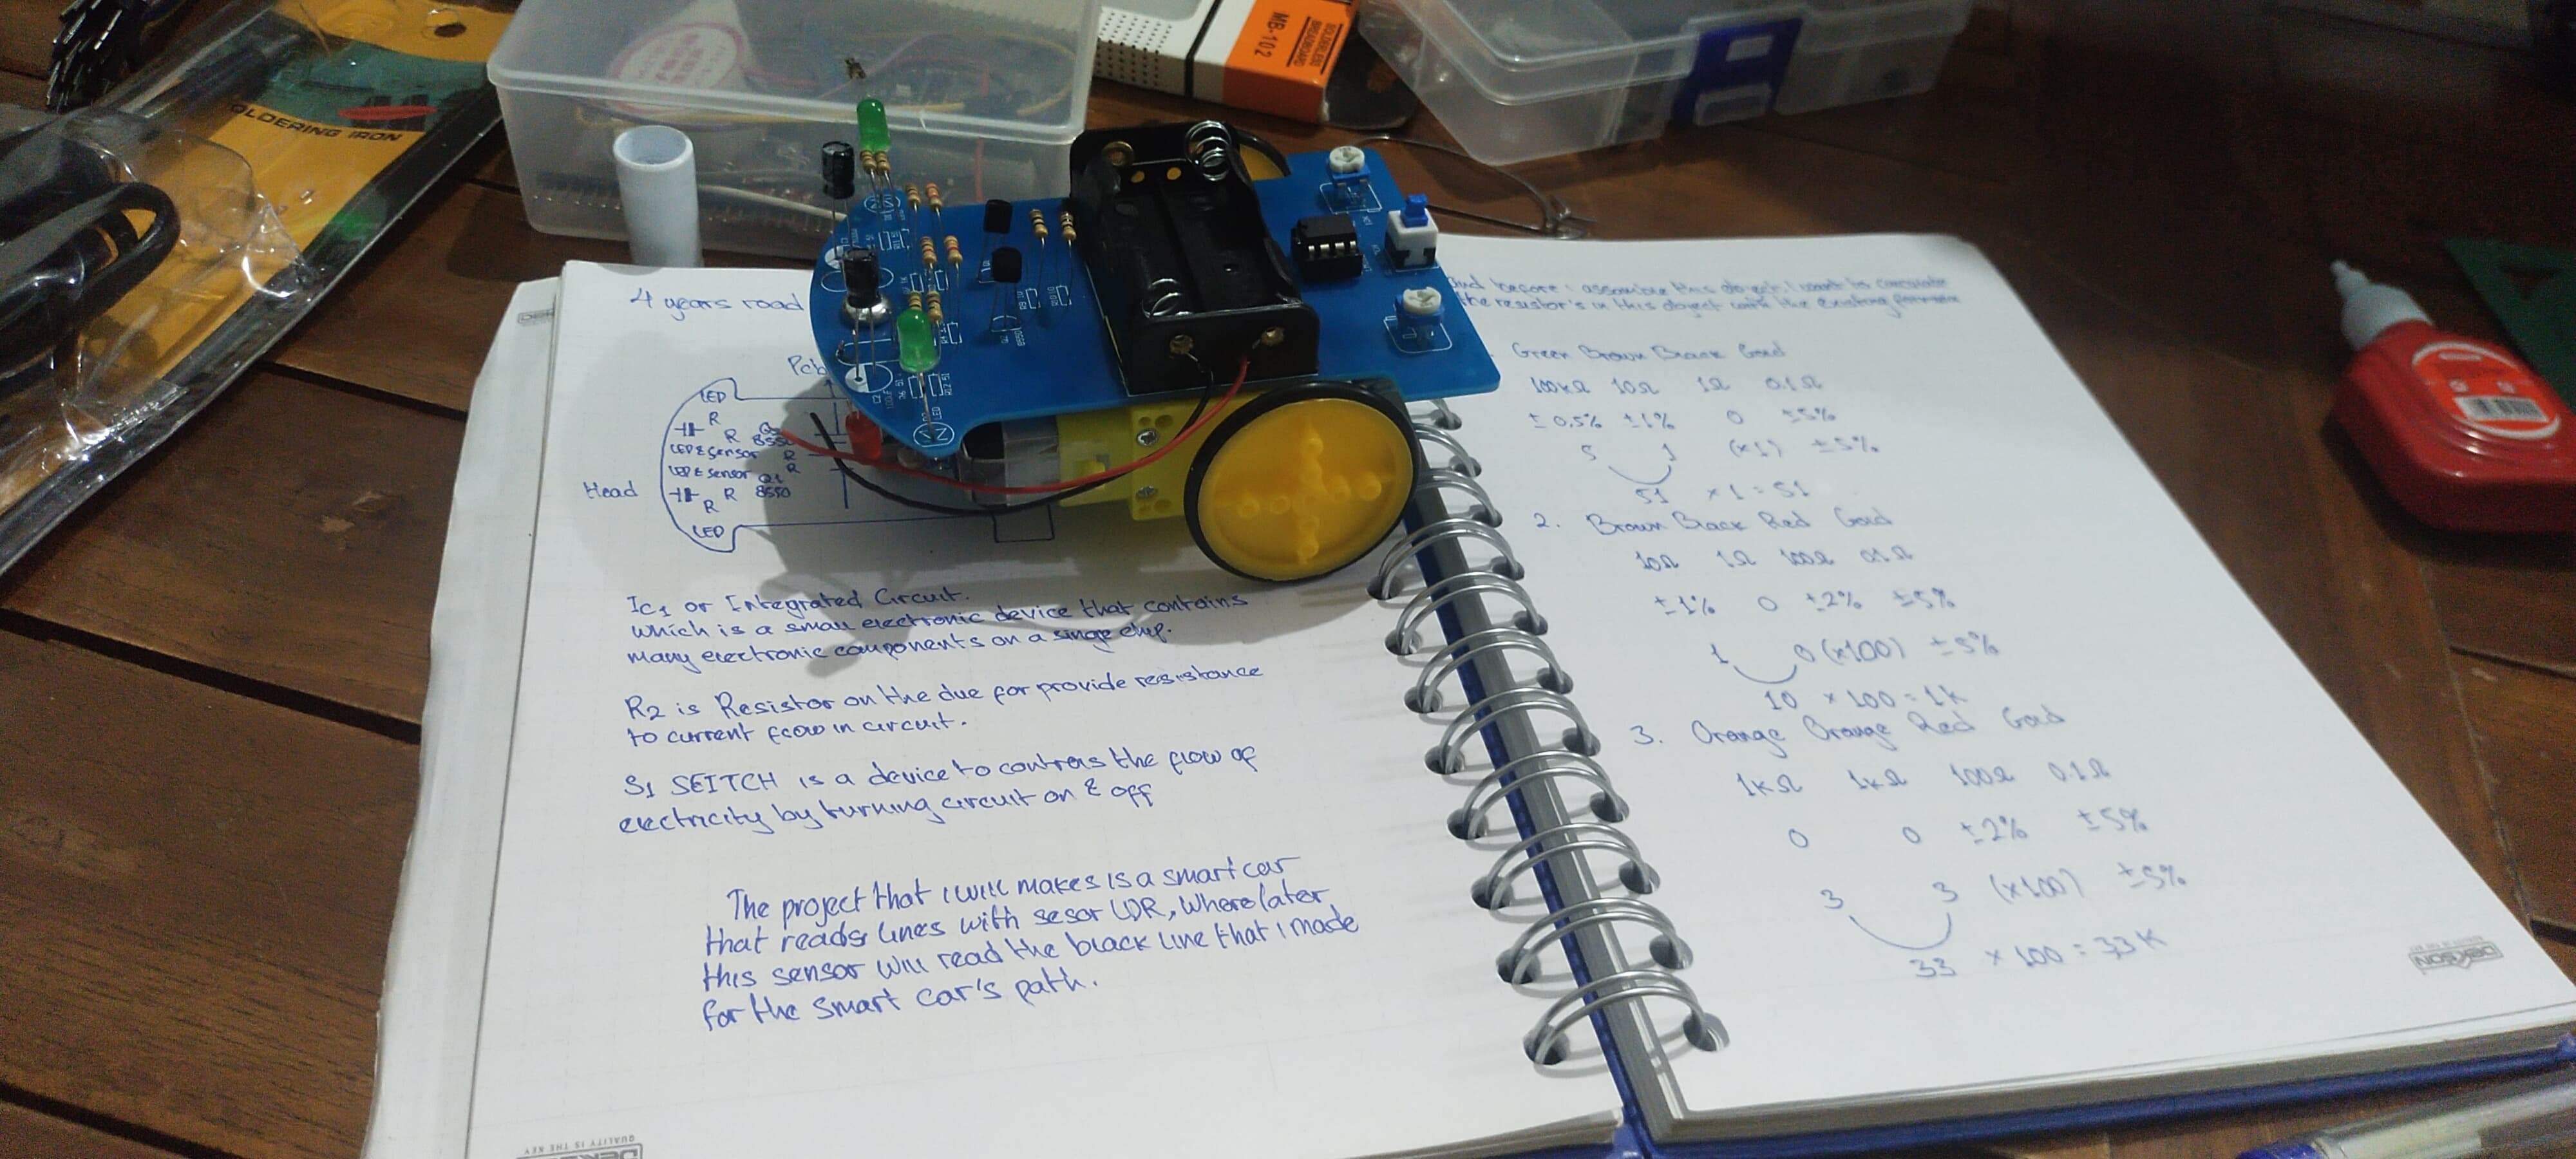 SOLDERING IRON
MB-102
SOLDERLESS
BREADBOARD
4 years road
Pcb
LED
R
R
8550
LED & Sensor R
LED & Sensor R
Q1
R 8550
R
LED
Head
Ic1 or Integrated Circuit.
which is a small electronic device that contains
many electronic components on a singe chip.
R2 is Resistor on the due for provide resistance
to current flow in circuit.
S1 SEITCH is a device to controls the flow of
electricity by turning circuit on & off
The project that i will makes is a smart car
that reads lines with sesor LDR, Where later
this sensor will read the black line that i made
for the smart car's path.
and before i assemble this object, I want to calculate
the resistor's in this object with the existing formula
Green Brown Black Gold
100kΩ 10Ω 1Ω 0.1Ω
± 0,5% ±1% 0 ±5%
5 1 (x1) ±5%
51 x 1 = 51
2. Brown Black Red Gold
10Ω 1Ω 100Ω 0.1Ω
±1% 0 ±2% ±5%
1 0 (x100) ±5%
10 x 100 = 1K
3. Orange Orange Red Gold
1kΩ 1kΩ 100Ω 0.1Ω
0 0 ±2% ±5%
3 3 (x100) ±5%
33 x 100 = 33K
QUALITY IS THE KEY